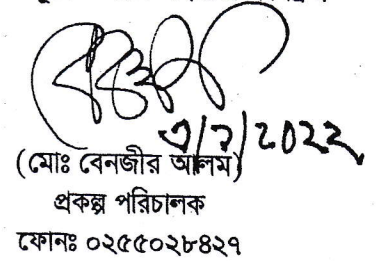 ৩/১/২০২২
(মোঃ বেনজীর আলম)
প্রকল্প পরিচালক
ফোনঃ ০২৫৫০২৮৪২৭